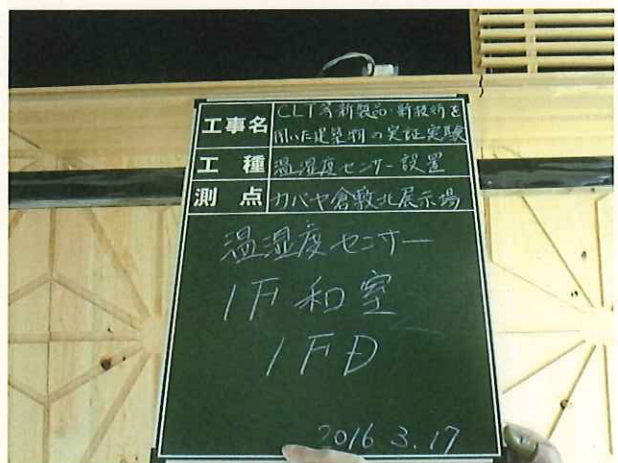 工事名 CLT等新製品・新技術を
用いた建築物の実証実験
工種 温湿度センサー設置
測点 カバヤ倉敷北展示場
温湿度センサー
1F和室
1FD
2016.3.17